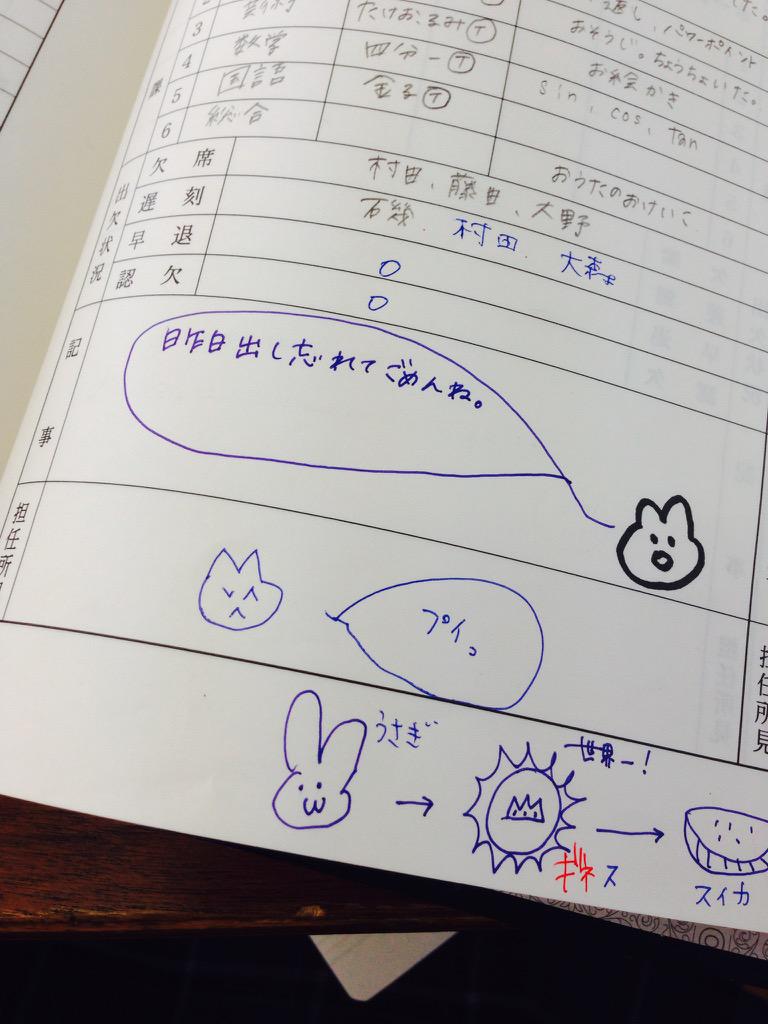 返し、パワーポイント
3 たけおるみ㋢ おそうじ。ちょうちょいた。
4 数学 四分一㋢ お絵かき
5 国語 金子㋢ sin, cos, tan
6 総合
出欠状況
欠席 村田、藤田、大野 おうたのおけいこ
遅刻 石幾 村田 大森
早退 0
認欠 0
記事
昨日出し忘れてごめんね。
担任所見
プイッ
担任所見
うさぎ
世界一!
ギネス
スイカ